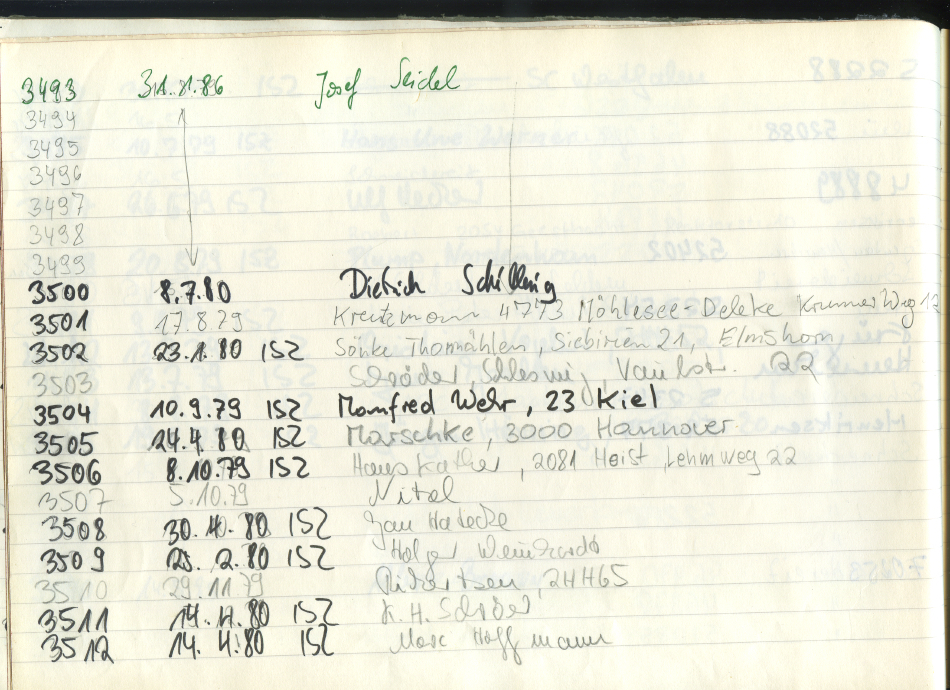 3493 31.81.86 Josef Seidel
3494
3495
3496
3497
3498
3499
3500 8.7.80 Dietrich Schilling
3501 17.8.79 Kreutzmann 4773 Möhlesee-Deleke Krummer Weg
3502 23.1.80 ISZ Sönke Thormählen, Siebirien 21, Elmshorn,
3503 Schröder, Schleswig, 22
3504 10.9.79 ISZ Manfred Wehr, 23 Kiel
3505 24.4.80 ISZ Marschke, 3000 Hannover
3506 8.10.79 ISZ Hans Kather, 2081 Heist, Lehmweg 22
3507 5.10.79 Nital
3508 30.10.80 ISZ Jan Hatecke
3509 25.2.80 ISZ Holger
3510 29.11.79 24465
3511 14.4.80 ISZ K.H. Schröder
3512 14.4.80 ISZ Marc Hoffmann